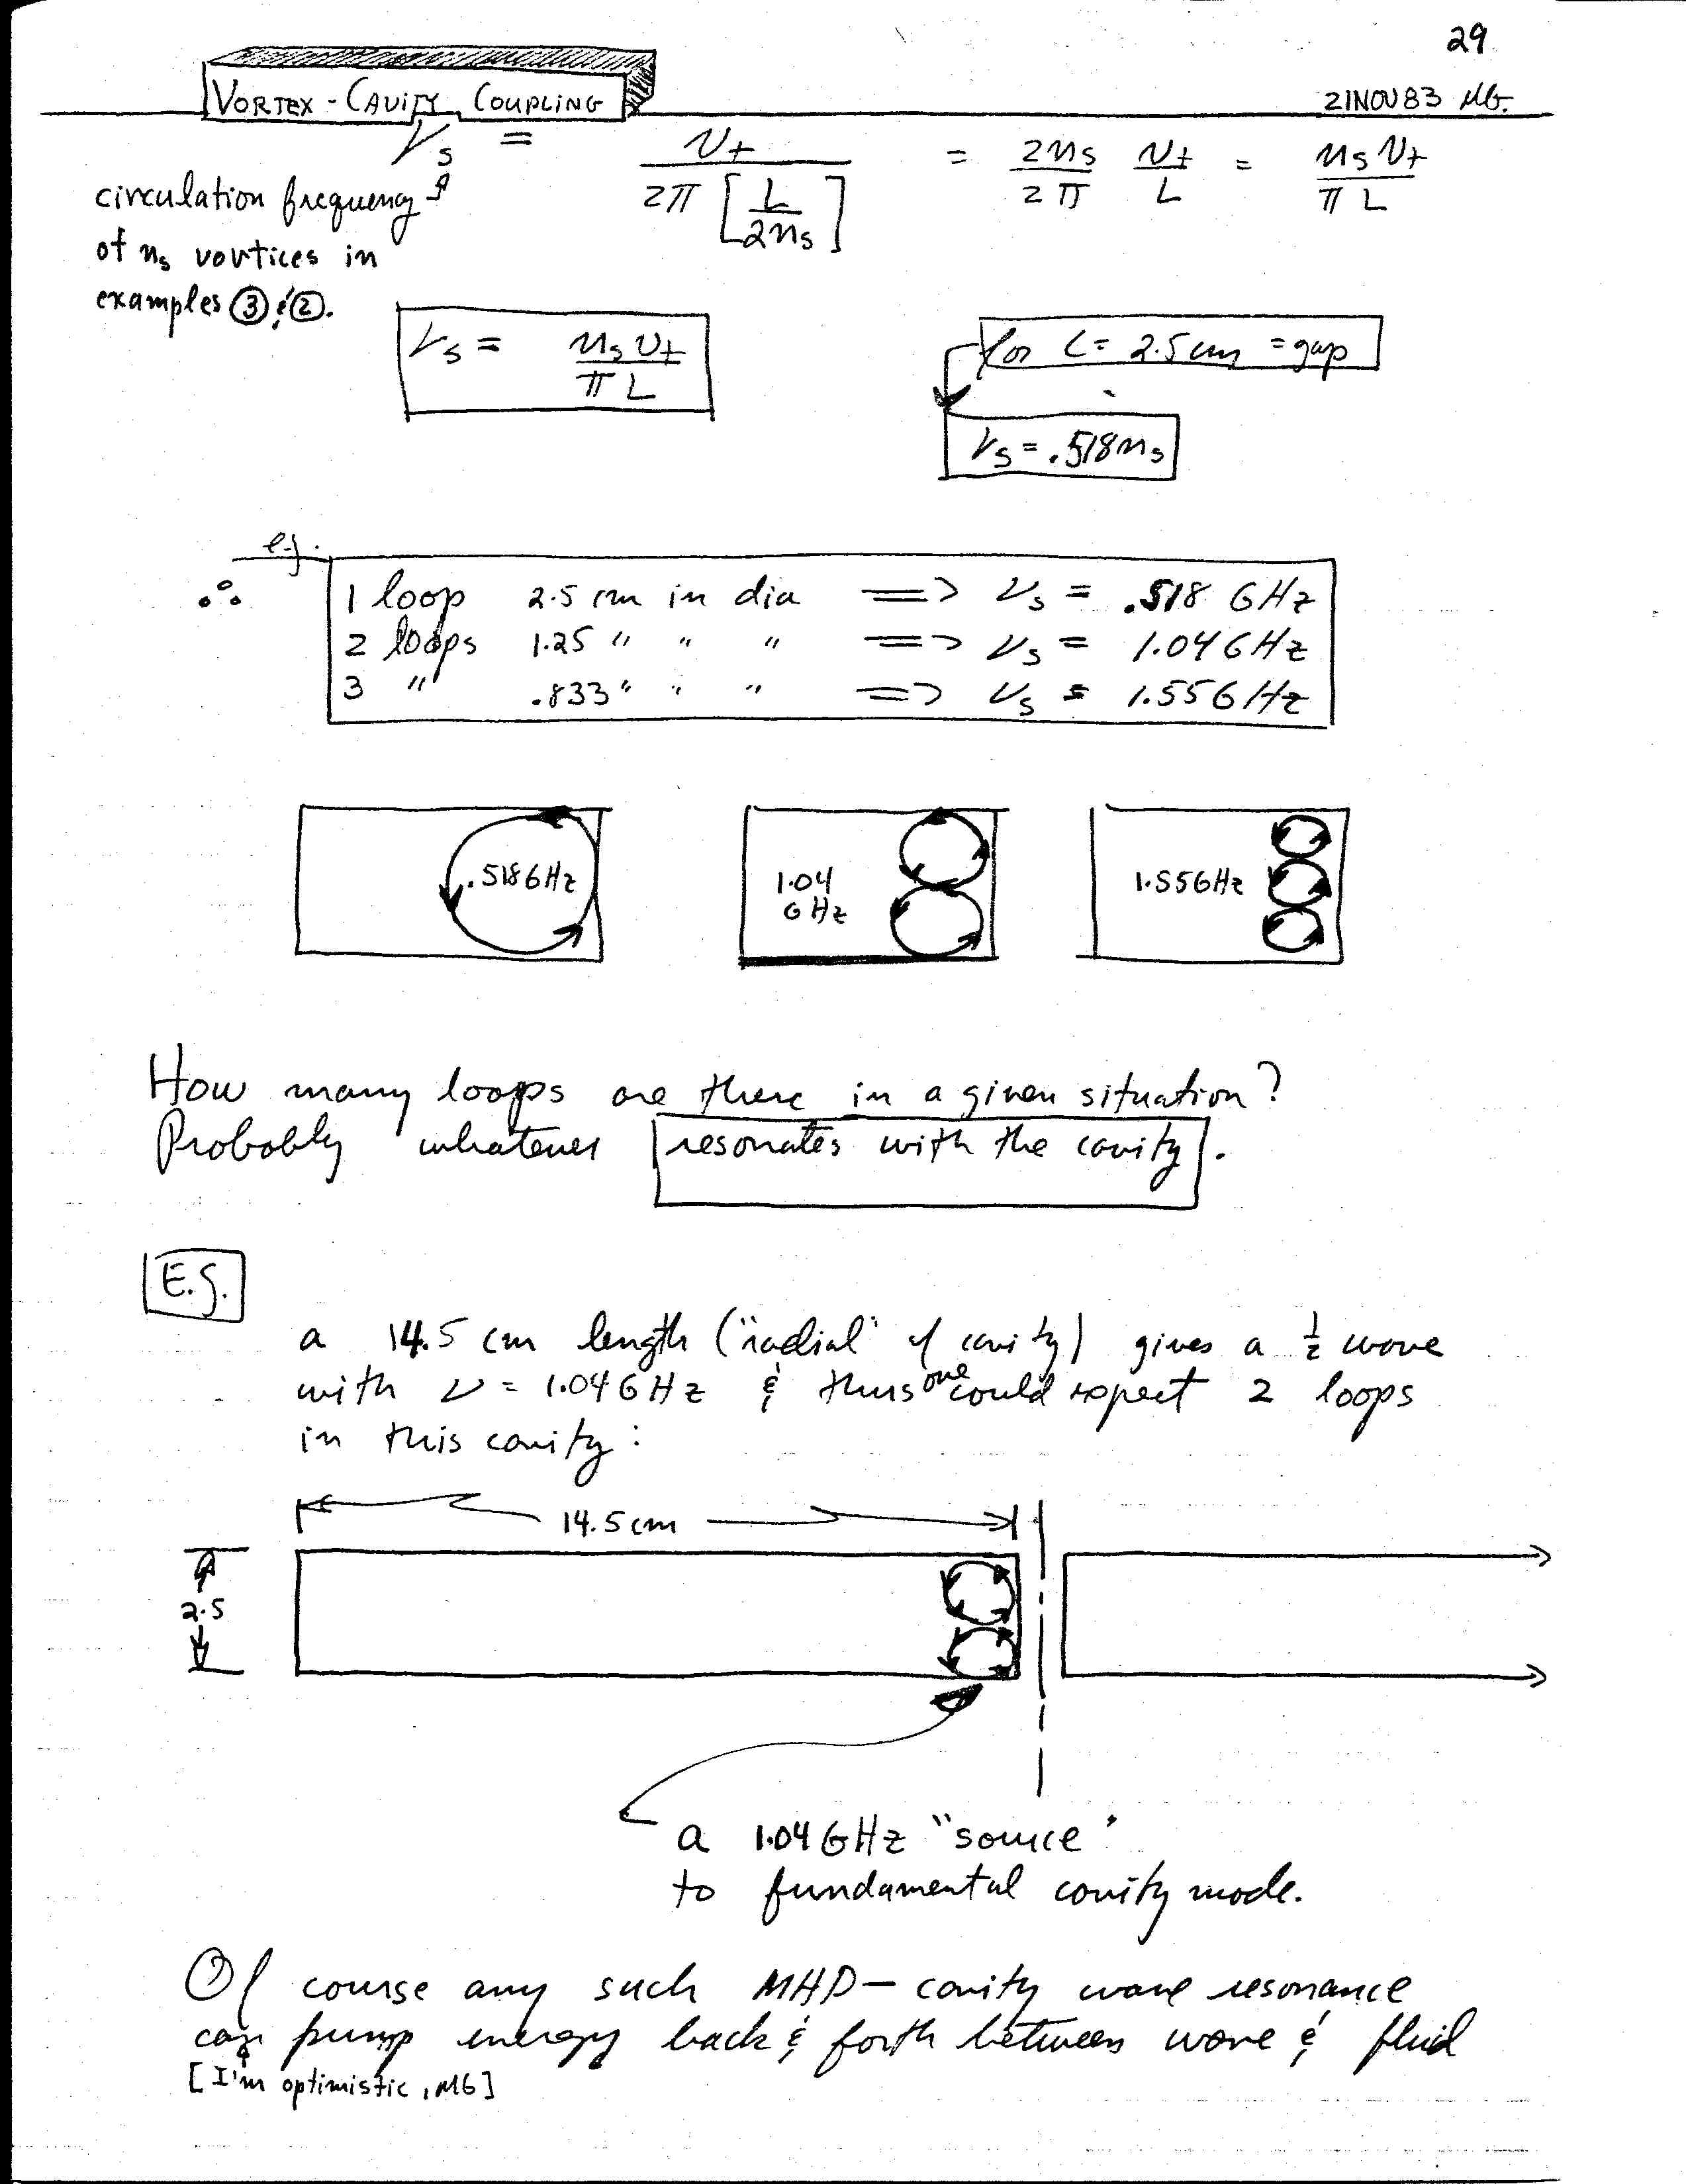 29
VORTEX - CAVITY COUPLING
21NOV83 MG.
νs = vt / 2π [L / 2ns] = 2ns / 2π vt / L = ns vt / π L
circulation frequency
of ns vortices in
examples ③ & ②.
νs = ns vt / π L
for L = 2.5 cm = gap
νs = .518 ns
e.g.
∴ 1 loop 2.5 cm in dia => νs = .518 GHz
2 loops 1.25 " " " => νs = 1.04 GHz
3 " .833 " " " => νs = 1.55 GHz
.518 GHz
1.04
GHz
1.55GHz
How many loops are there in a given situation?
Probably whatever resonates with the cavity.
E.G.
a 14.5 cm length ("radial" of cavity) gives a ½ wave
with ν = 1.04 GHz & thus one could expect 2 loops
in this cavity:
14.5 cm
2.5
a 1.04 GHz "source"
to fundamental cavity mode.
Of course any such MHD - cavity wave resonance
can pump energy back & forth between wave & fluid
[I'm optimistic, MG]